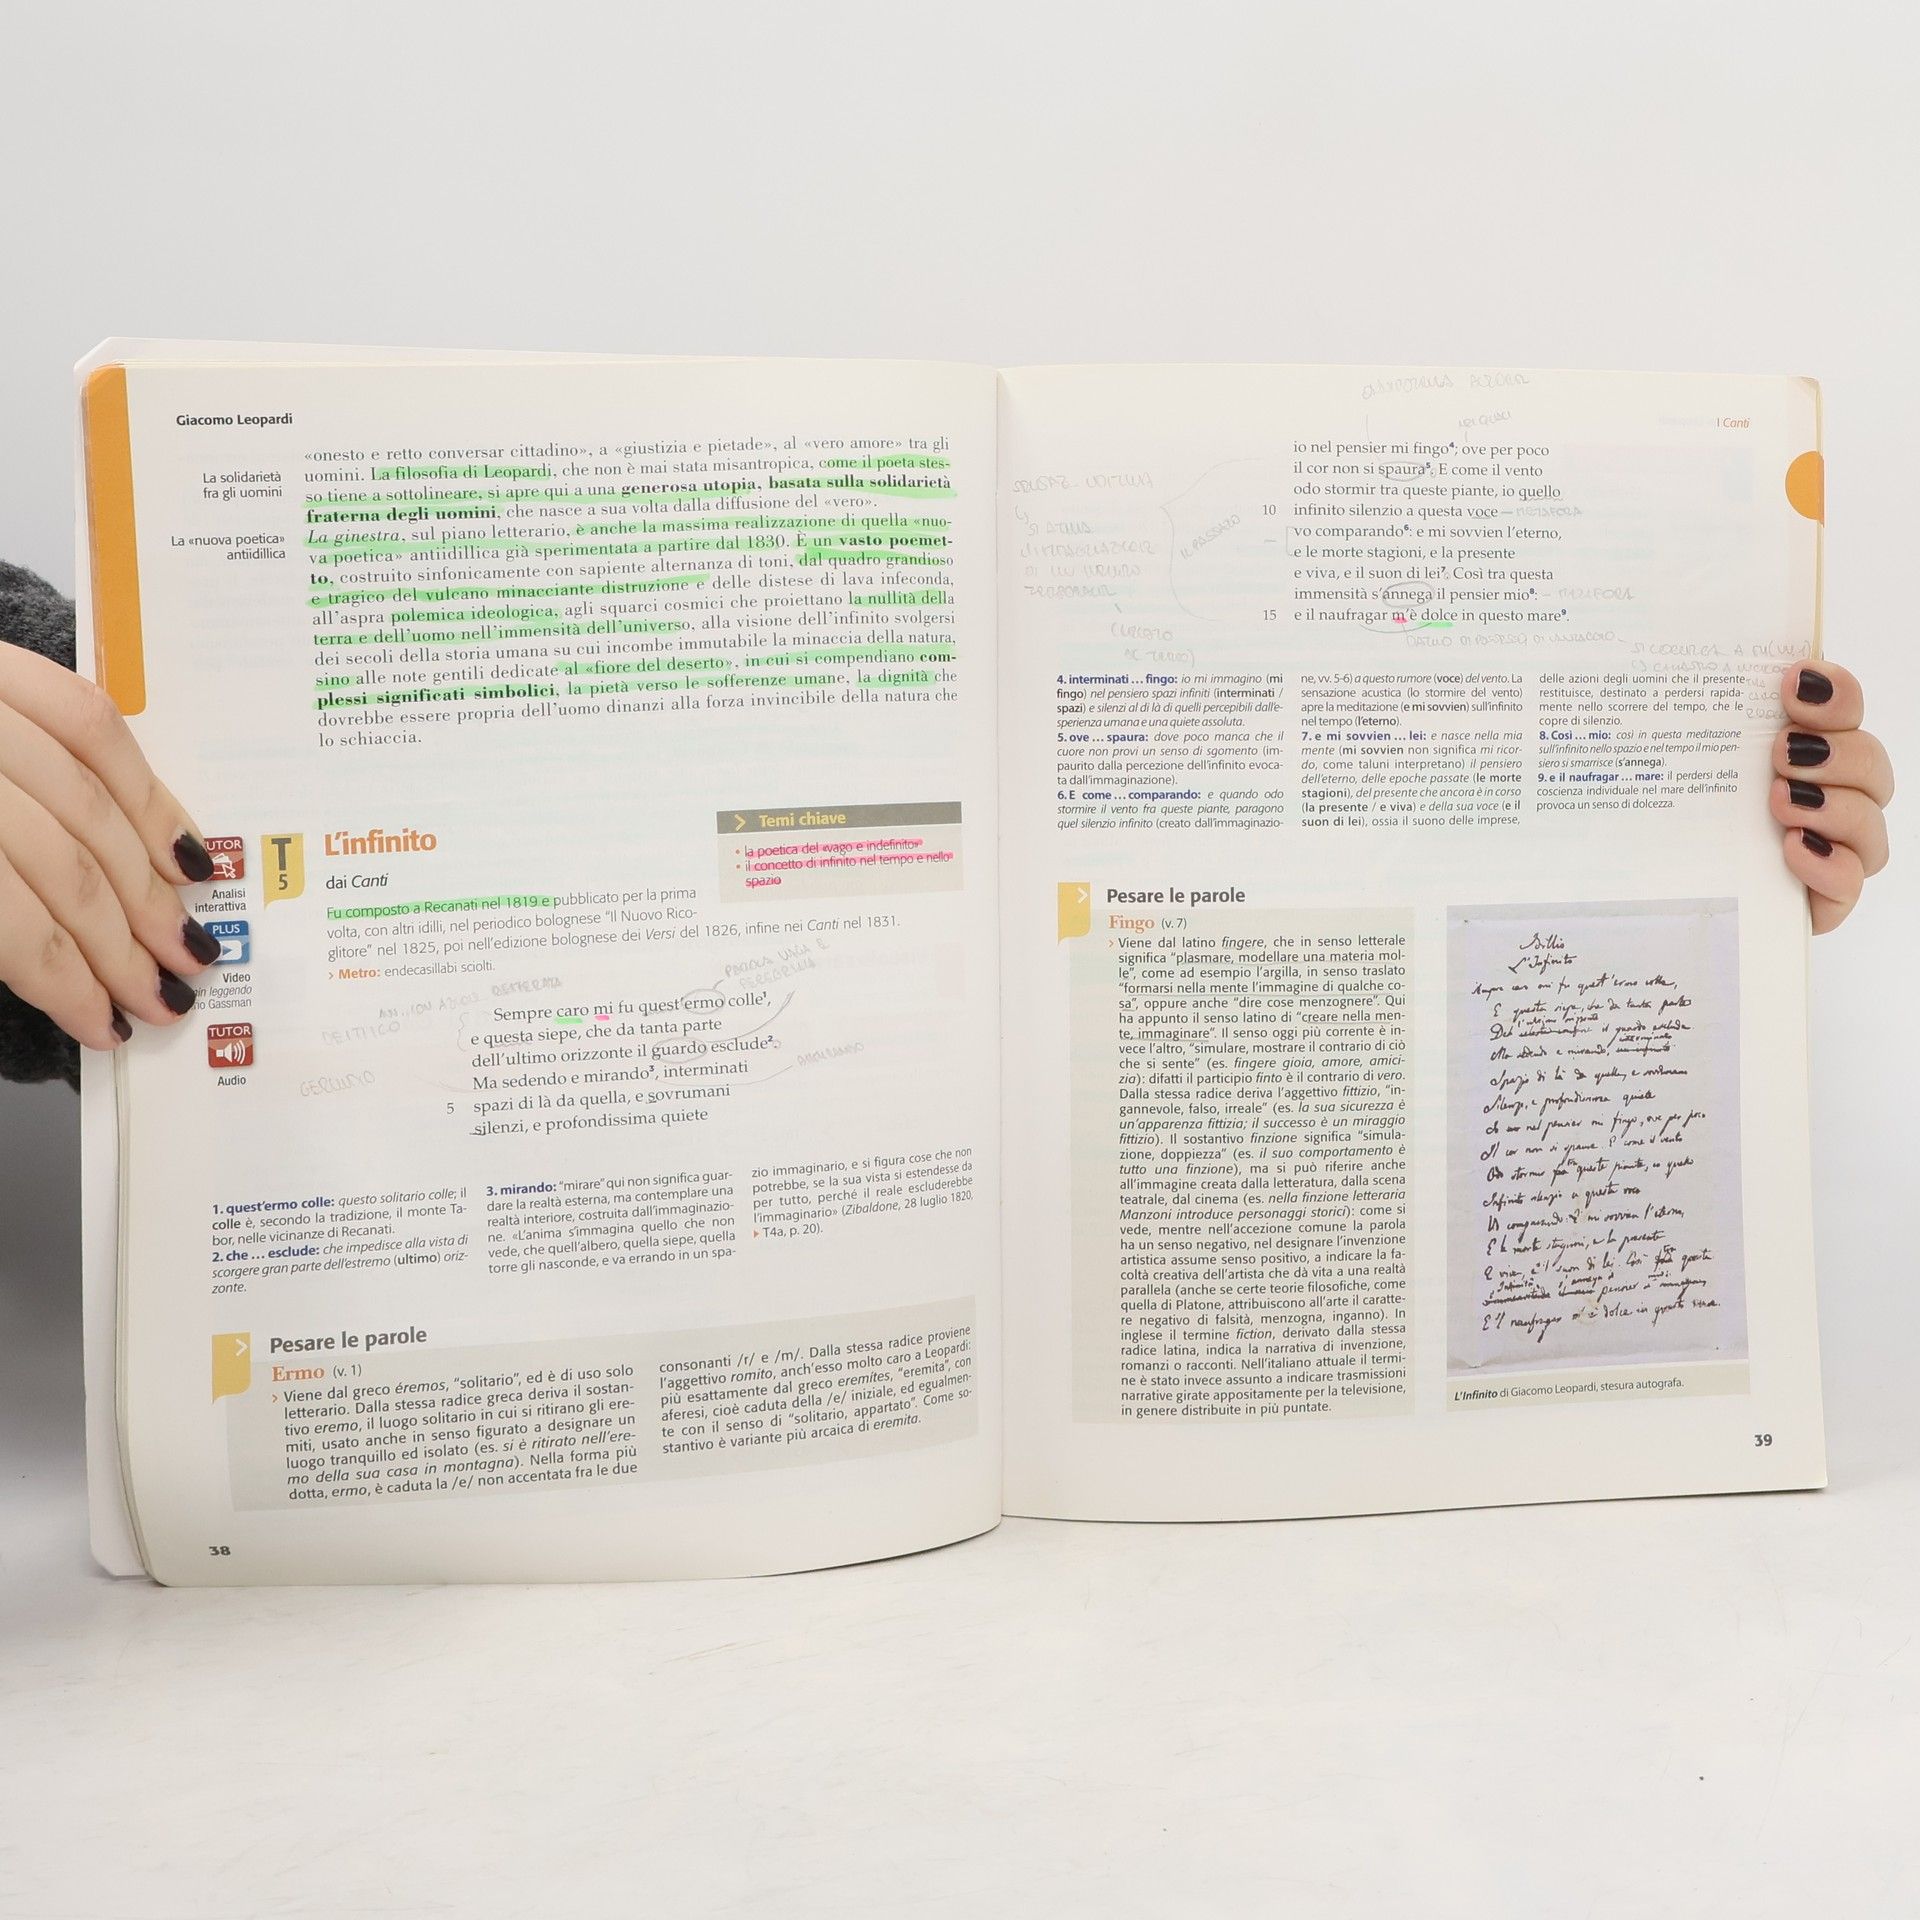 Giacomo Leopardi
«onesto e retto conversar cittadino», a «giustizia e pietade», al «vero amore» tra gli
uomini. La filosofia di Leopardi, che non è mai stata misantropica, come il poeta stes-
so tiene a sottolineare, si apre qui a una generosa utopia, basata sulla solidarietà
fraterna degli uomini, che nasce a sua volta dalla diffusione del «vero».
La ginestra, sul piano letterario, è anche la massima realizzazione di quella «nuo-
va poetica» antiidillica già sperimentata a partire dal 1830. È un vasto poemet-
to, costruito sinfonicamente con sapiente alternanza di toni, dal quadro grandioso
e tragico del vulcano minacciante distruzione e delle distese di lava infeconda,
all'aspra polemica ideologica, agli squarci cosmici che proiettano la nullità della
terra e dell'uomo nell'immensità dell'universo, alla visione dell'infinito svolgersi
dei secoli della storia umana su cui incombe immutabile la minaccia della natura,
sino alle note gentili dedicate al «fiore del deserto», in cui si compendiano com-
plessi significati simbolici, la pietà verso le sofferenze umane, la dignità che
dovrebbe essere propria dell'uomo dinanzi alla forza invincibile della natura che
lo schiaccia.
La solidarietà
fra gli uomini
La «nuova poetica»
antiidillica
TUTOR
Analisi
interattiva
PLUS
Video
leggendo
Gassman
TUTOR
Audio
T
5
L'infinito
dai Canti
Temi chiave
• la poetica del «vago e indefinito»
• il concetto di infinito nel tempo e nello
spazio
Fu composto a Recanati nel 1819 e pubblicato per la prima
volta, con altri idilli, nel periodico bolognese "Il Nuovo Rico-
glitore" nel 1825, poi nell'edizione bolognese dei Versi del 1826, infine nei Canti nel 1831.
> Metro: endecasillabi sciolti.
PAROLA VAGA E
PEREGRINA
DEITTICO
GERUNDIO
Sempre caro mi fu quest'ermo colle¹,
e questa siepe, che da tanta parte
dell'ultimo orizzonte il guardo esclude².
Ma sedendo e mirando³, interminati
5 spazi di là da quella, e sovrumani
silenzi, e profondissima quiete
1. quest'ermo colle: questo solitario colle; il
colle è, secondo la tradizione, il monte Ta-
bor, nelle vicinanze di Recanati.
2. che ... esclude: che impedisce alla vista di
scorgere gran parte dell'estremo (ultimo) oriz-
zonte.
3. mirando: "mirare" qui non significa guar-
dare la realtà esterna, ma contemplare una
realtà interiore, costruita dall'immaginazio-
ne. «L'anima s'immagina quello che non
vede, che quell'albero, quella siepe, quella
torre gli nasconde, e va errando in un spa-
zio immaginario, e si figura cose che non
potrebbe, se la sua vista si estendesse da
per tutto, perché il reale escluderebbe
l'immaginario» (Zibaldone, 28 luglio 1820,
T4a, p. 20).
Pesare le parole
Ermo (v. 1)
> Viene dal greco éremos, "solitario", ed è di uso solo
letterario. Dalla stessa radice greca deriva il sostan-
tivo eremo, il luogo solitario in cui si ritirano gli ere-
miti, usato anche in senso figurato a designare un
luogo tranquillo ed isolato (es. si è ritirato nell'ere-
mo della sua casa in montagna). Nella forma più
dotta, ermo, è caduta la /e/ non accentata fra le due
consonanti /r/ e /m/. Dalla stessa radice proviene
l'aggettivo romito, anch'esso molto caro a Leopardi:
più esattamente dal greco eremítes, "eremita", con
aferesi, cioè caduta della /e/ iniziale, ed egualmen-
te con il senso di "solitario, appartato". Come so-
stantivo è variante più arcaica di eremita.
38
I Canti
io nel pensier mi fingo⁴; ove per poco
il cor non si spaura⁵. E come il vento
odo stormir tra queste piante, io quello
10 infinito silenzio a questa voce
METAFORA
vo comparando⁶: e mi sovvien l'eterno,
e le morte stagioni, e la presente
e viva, e il suon di lei⁷. Così tra questa
immensità s'annega il pensier mio⁸:
METAFORA
15 e il naufragar m'è dolce in questo mare⁹.
IL PASSATO
4. interminati ... fingo: io mi immagino (mi
fingo) nel pensiero spazi infiniti (interminati /
spazi) e silenzi al di là di quelli percepibili dall'e-
sperienza umana e una quiete assoluta.
5. ove ... spaura: dove poco manca che il
cuore non provi un senso di sgomento (im-
paurito dalla percezione dell'infinito evoca-
ta dall'immaginazione).
6. E come ... comparando: e quando odo
stormire il vento fra queste piante, paragono
quel silenzio infinito (creato dall'immaginazio-
ne, vv. 5-6) a questo rumore (voce) del vento. La
sensazione acustica (lo stormire del vento)
apre la meditazione (e mi sovvien) sull'infinito
nel tempo (l'eterno).
7. e mi sovvien ... lei: e nasce nella mia
mente (mi sovvien non significa mi ricor-
do, come taluni interpretano) il pensiero
dell'eterno, delle epoche passate (le morte
stagioni), del presente che ancora è in corso
(la presente / e viva) e della sua voce (e il
suon di lei), ossia il suono delle imprese,
delle azioni degli uomini che il presente
restituisce, destinato a perdersi rapida-
mente nello scorrere del tempo, che le
copre di silenzio.
8. Così ... mio: così in questa meditazione
sull'infinito nello spazio e nel tempo il mio pen-
siero si smarrisce (s'annega).
9. e il naufragar ... mare: il perdersi della
coscienza individuale nel mare dell'infinito
provoca un senso di dolcezza.
Pesare le parole
Fingo (v. 7)
> Viene dal latino fingere, che in senso letterale
significa "plasmare, modellare una materia mol-
le", come ad esempio l'argilla, in senso traslato
"formarsi nella mente l'immagine di qualche co-
sa", oppure anche "dire cose menzognere". Qui
ha appunto il senso latino di "creare nella men-
te, immaginare". Il senso oggi più corrente è in-
vece l'altro, "simulare, mostrare il contrario di ciò
che si sente" (es. fingere gioia, amore, amici-
zia): difatti il participio finto è il contrario di vero.
Dalla stessa radice deriva l'aggettivo fittizio, "in-
gannevole, falso, irreale" (es. la sua sicurezza è
un'apparenza fittizia; il successo è un miraggio
fittizio). Il sostantivo finzione significa "simula-
zione, doppiezza" (es. il suo comportamento è
tutto una finzione), ma si può riferire anche
all'immagine creata dalla letteratura, dalla scena
teatrale, dal cinema (es. nella finzione letteraria
Manzoni introduce personaggi storici): come si
vede, mentre nell'accezione comune la parola
ha un senso negativo, nel designare l'invenzione
artistica assume senso positivo, a indicare la fa-
coltà creativa dell'artista che dà vita a una realtà
parallela (anche se certe teorie filosofiche, come
quella di Platone, attribuiscono all'arte il caratte-
re negativo di falsità, menzogna, inganno). In
inglese il termine fiction, derivato dalla stessa
radice latina, indica la narrativa di invenzione,
romanzi o racconti. Nell'italiano attuale il termi-
ne è stato invece assunto a indicare trasmissioni
narrative girate appositamente per la televisione,
in genere distribuite in più puntate.
L'Infinito
L'Infinito di Giacomo Leopardi, stesura autografa.
39